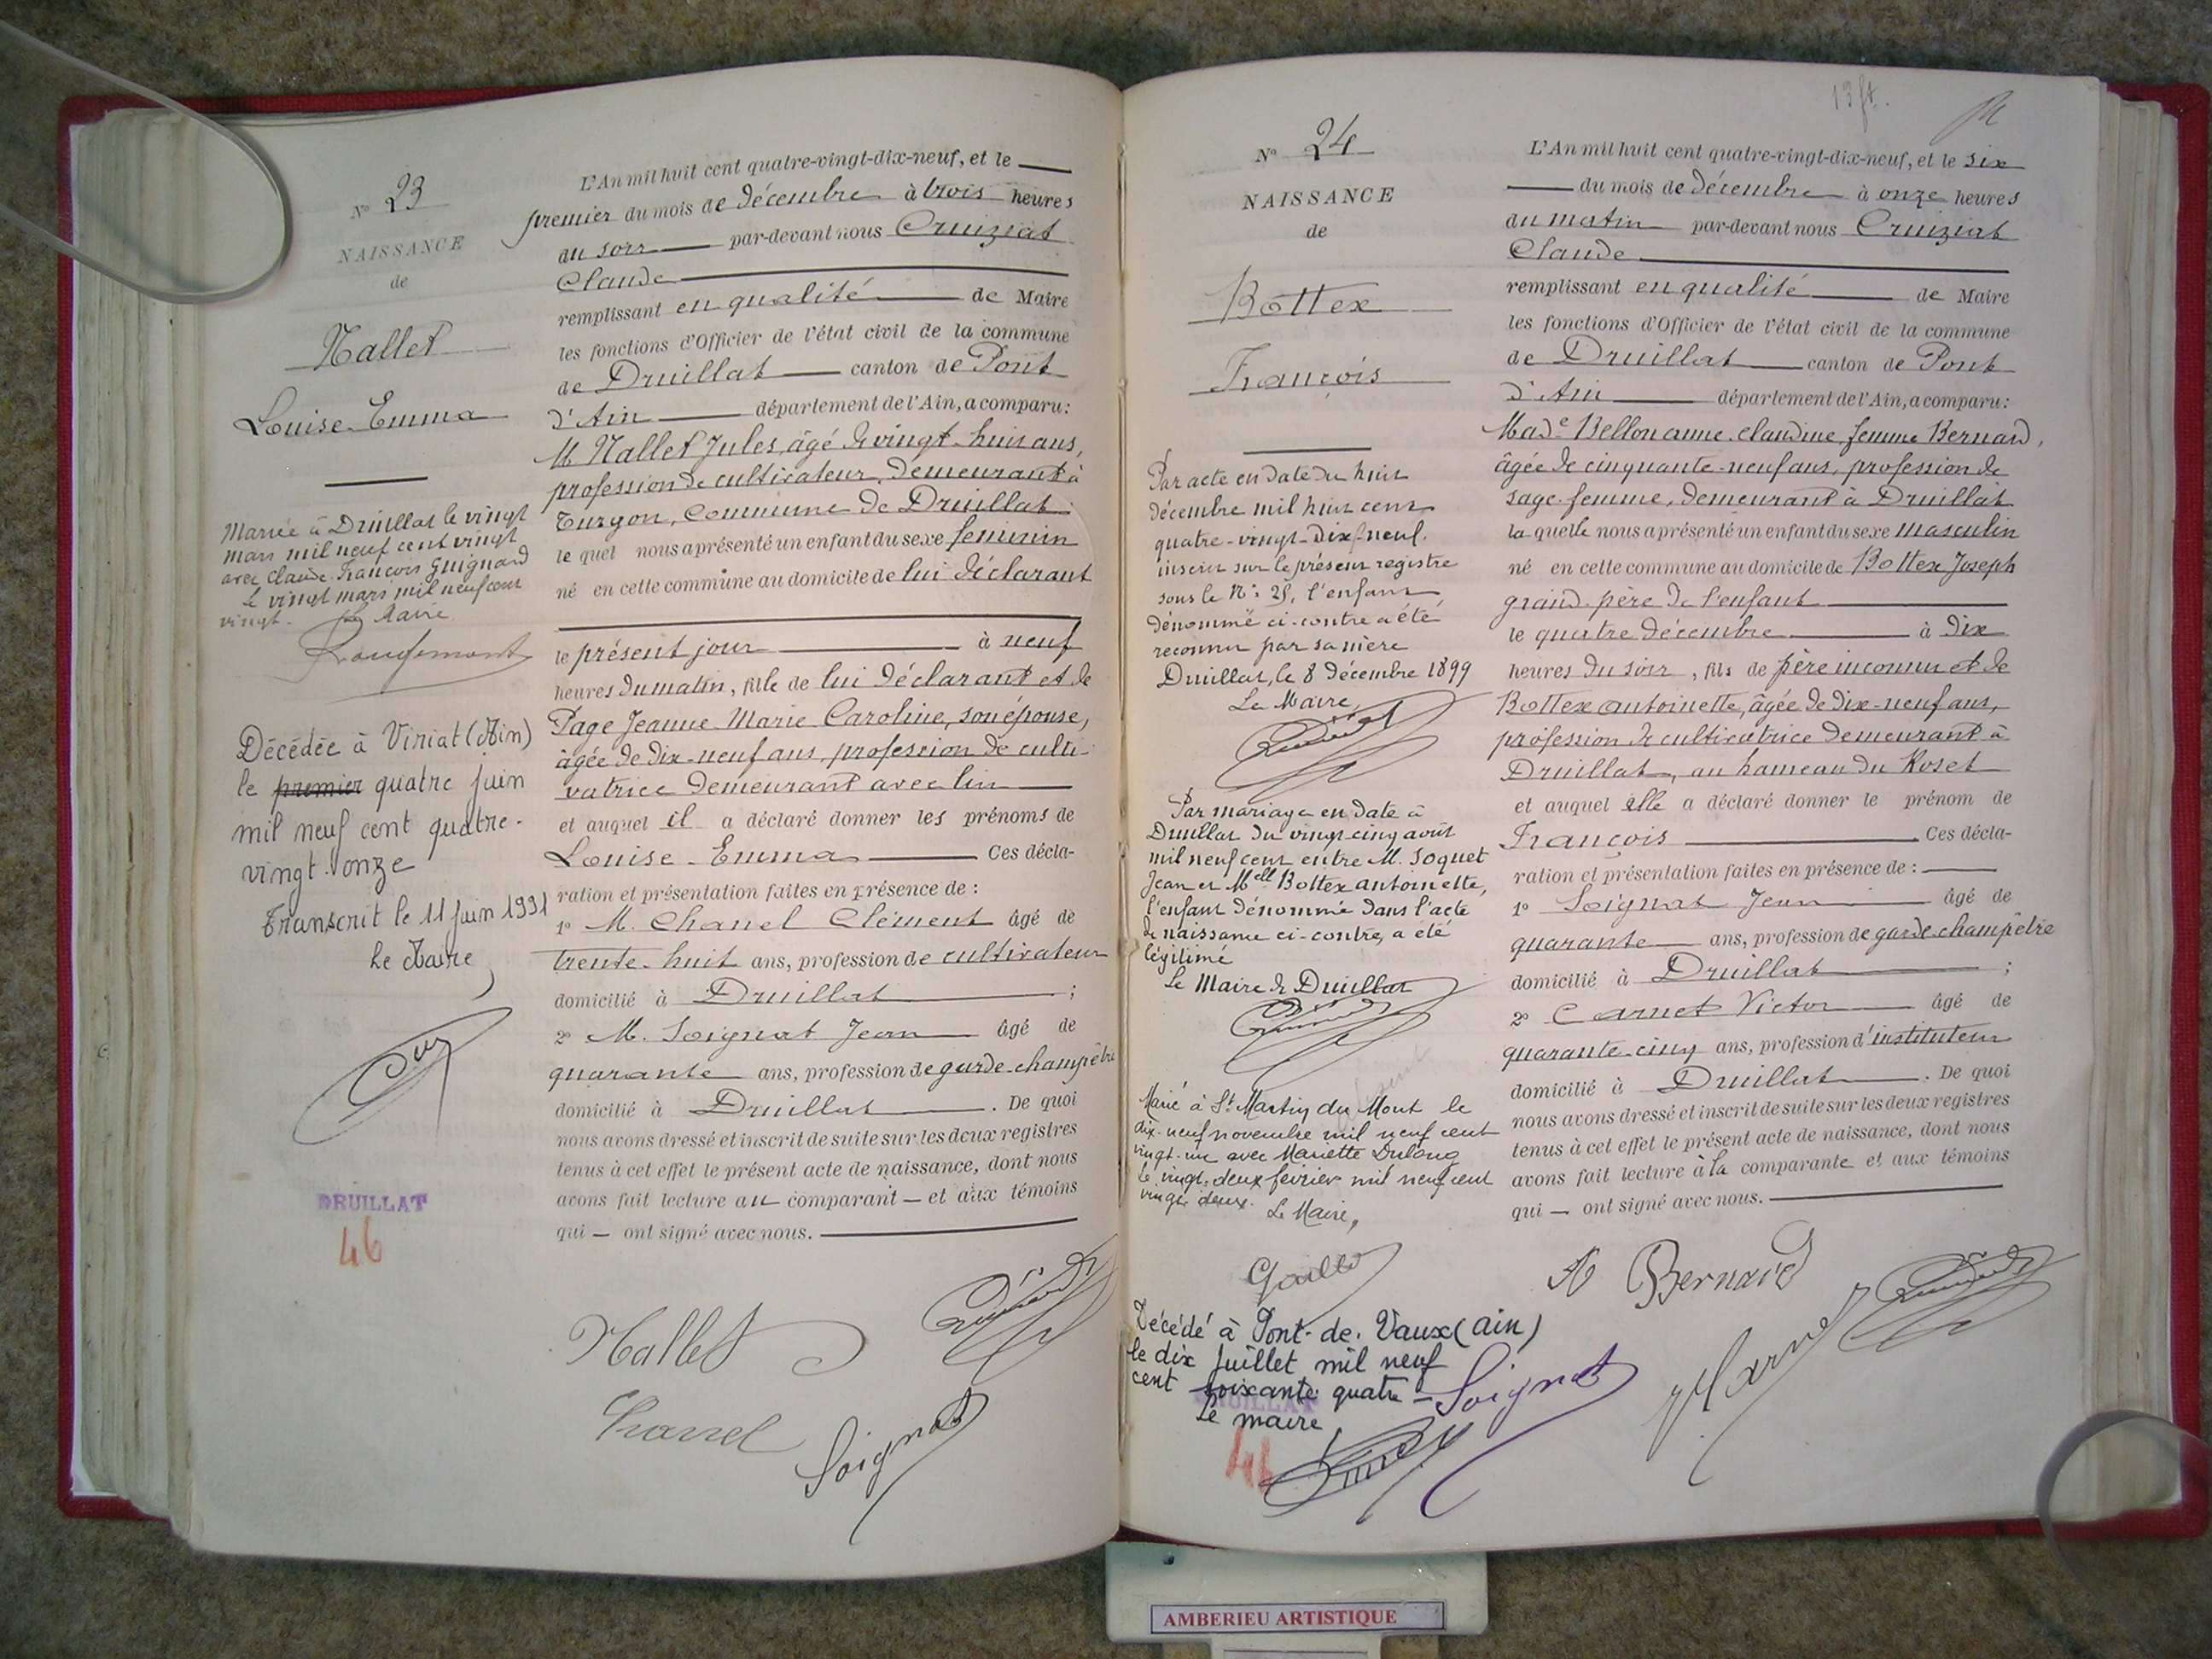 N° 23
NAISSANCE
de
Nallet
Louise-Emma
Mariée à Druillat le vingt
mars mil neuf cent vingt
avec Claude-François Guignard
le vingt mars mil neuf cent
vingt. Le Maire
Rougemont
Décédée à Viriat (Ain)
le premier quatre juin
mil neuf cent quatre-
vingt-onze
Transcrit le 11 juin 1991
Le Maire,
DRUILLAT
46
L'An mil huit cent quatre-vingt-dix-neuf, et le
premier du mois de décembre à trois heures
du soir par-devant nous Cruiziat
Claude
remplissant en qualité de Maire
les fonctions d'Officier de l'état civil de la commune
de Druillat canton de Pont
d'Ain département de l'Ain, a comparu:
M Nallet Jules, âgé de vingt-huit ans,
profession de cultivateur, demeurant à
Turgon, commune de Druillat
le quel nous a présenté un enfant du sexe feminin
né en cette commune au domicile de lui déclarant
le présent jour à neuf
heures du matin, fille de lui déclarant et de
Page Jeanne-Marie-Caroline, son épouse,
âgée de dix-neuf ans, profession de culti-
vatrice demeurant avec lui
et auquel il a déclaré donner les prénoms de
Louise-Emma Ces décla-
ration et présentation faites en présence de :
1° M. Chanel Clément âgé de
trente-huit ans, profession de cultivateur
domicilié à Druillat ;
2° M. Soignat Jean âgé de
quarante ans, profession de garde-champêtre
domicilié à Druillat . De quoi
nous avons dressé et inscrit de suite sur les deux registres
tenus à cet effet le présent acte de naissance, dont nous
avons fait lecture au comparant — et aux témoins
qui — ont signé avec nous.
Nallet
Chanel
Soignat
13 ft.
N° 24
NAISSANCE
de
Bottex
François
Par acte en date du huit
décembre mil huit cent
quatre-vingt-dix-neuf,
inscrit sur le présent registre
sous le N° 25, l'enfant
dénommé ci-contre a été
reconnu par sa mère
Druillat, le 8 décembre 1899
Le Maire,
Par mariage en date à
Druillat du vingt-cinq août
mil neuf cent entre M. Soquet
Jean et Mell Bottex Antoinette,
l'enfant dénommé dans l'acte
de naissance ci-contre, a été
légitimé
Le Maire de Druillat
Marié à St Martin du Mont le
dix-neuf novembre mil neuf cent
vingt-un avec Mariette Dulong
le vingt-deux février mil neuf cent
vingt deux. Le Maire,
Décédé à Pont-de-Vaux (Ain)
le dix juillet mil neuf
cent soixante quatre -
Le maire
DRUILLAT
46
L'An mil huit cent quatre-vingt-dix-neuf, et le six
du mois de décembre à onze heures
du matin par-devant nous Cruiziat
Claude
remplissant en qualité de Maire
les fonctions d'Officier de l'état civil de la commune
de Druillat canton de Pont
d'Ain département de l'Ain, a comparu:
Made Bellon anne-claudine, femme Bernard,
âgée de cinquante-neuf ans, profession de
sage-femme, demeurant à Druillat
la quelle nous a présenté un enfant du sexe masculin
né en cette commune au domicile de Bottex Joseph
grand-père de l'enfant
le quatre décembre à dix
heures du soir , fils de père inconnu et de
Bottex Antoinette, âgée de dix-neuf ans,
profession de cultivatrice demeurant à
Druillat, au hameau du Roset
et auquel elle a déclaré donner le prénom de
François . Ces décla-
ration et présentation faites en présence de :
1° Soignat Jean âgé de
quarante ans, profession de garde-champêtre
domicilié à Druillat ;
2° Carnet Victor âgé de
quarante-cinq ans, profession d'instituteur
domicilié à Druillat . De quoi
nous avons dressé et inscrit de suite sur les deux registres
tenus à cet effet le présent acte de naissance, dont nous
avons fait lecture à la comparante et aux témoins
qui — ont signé avec nous.
A Bernard
Soignat
V Carnet
AMBERIEU ARTISTIQUE